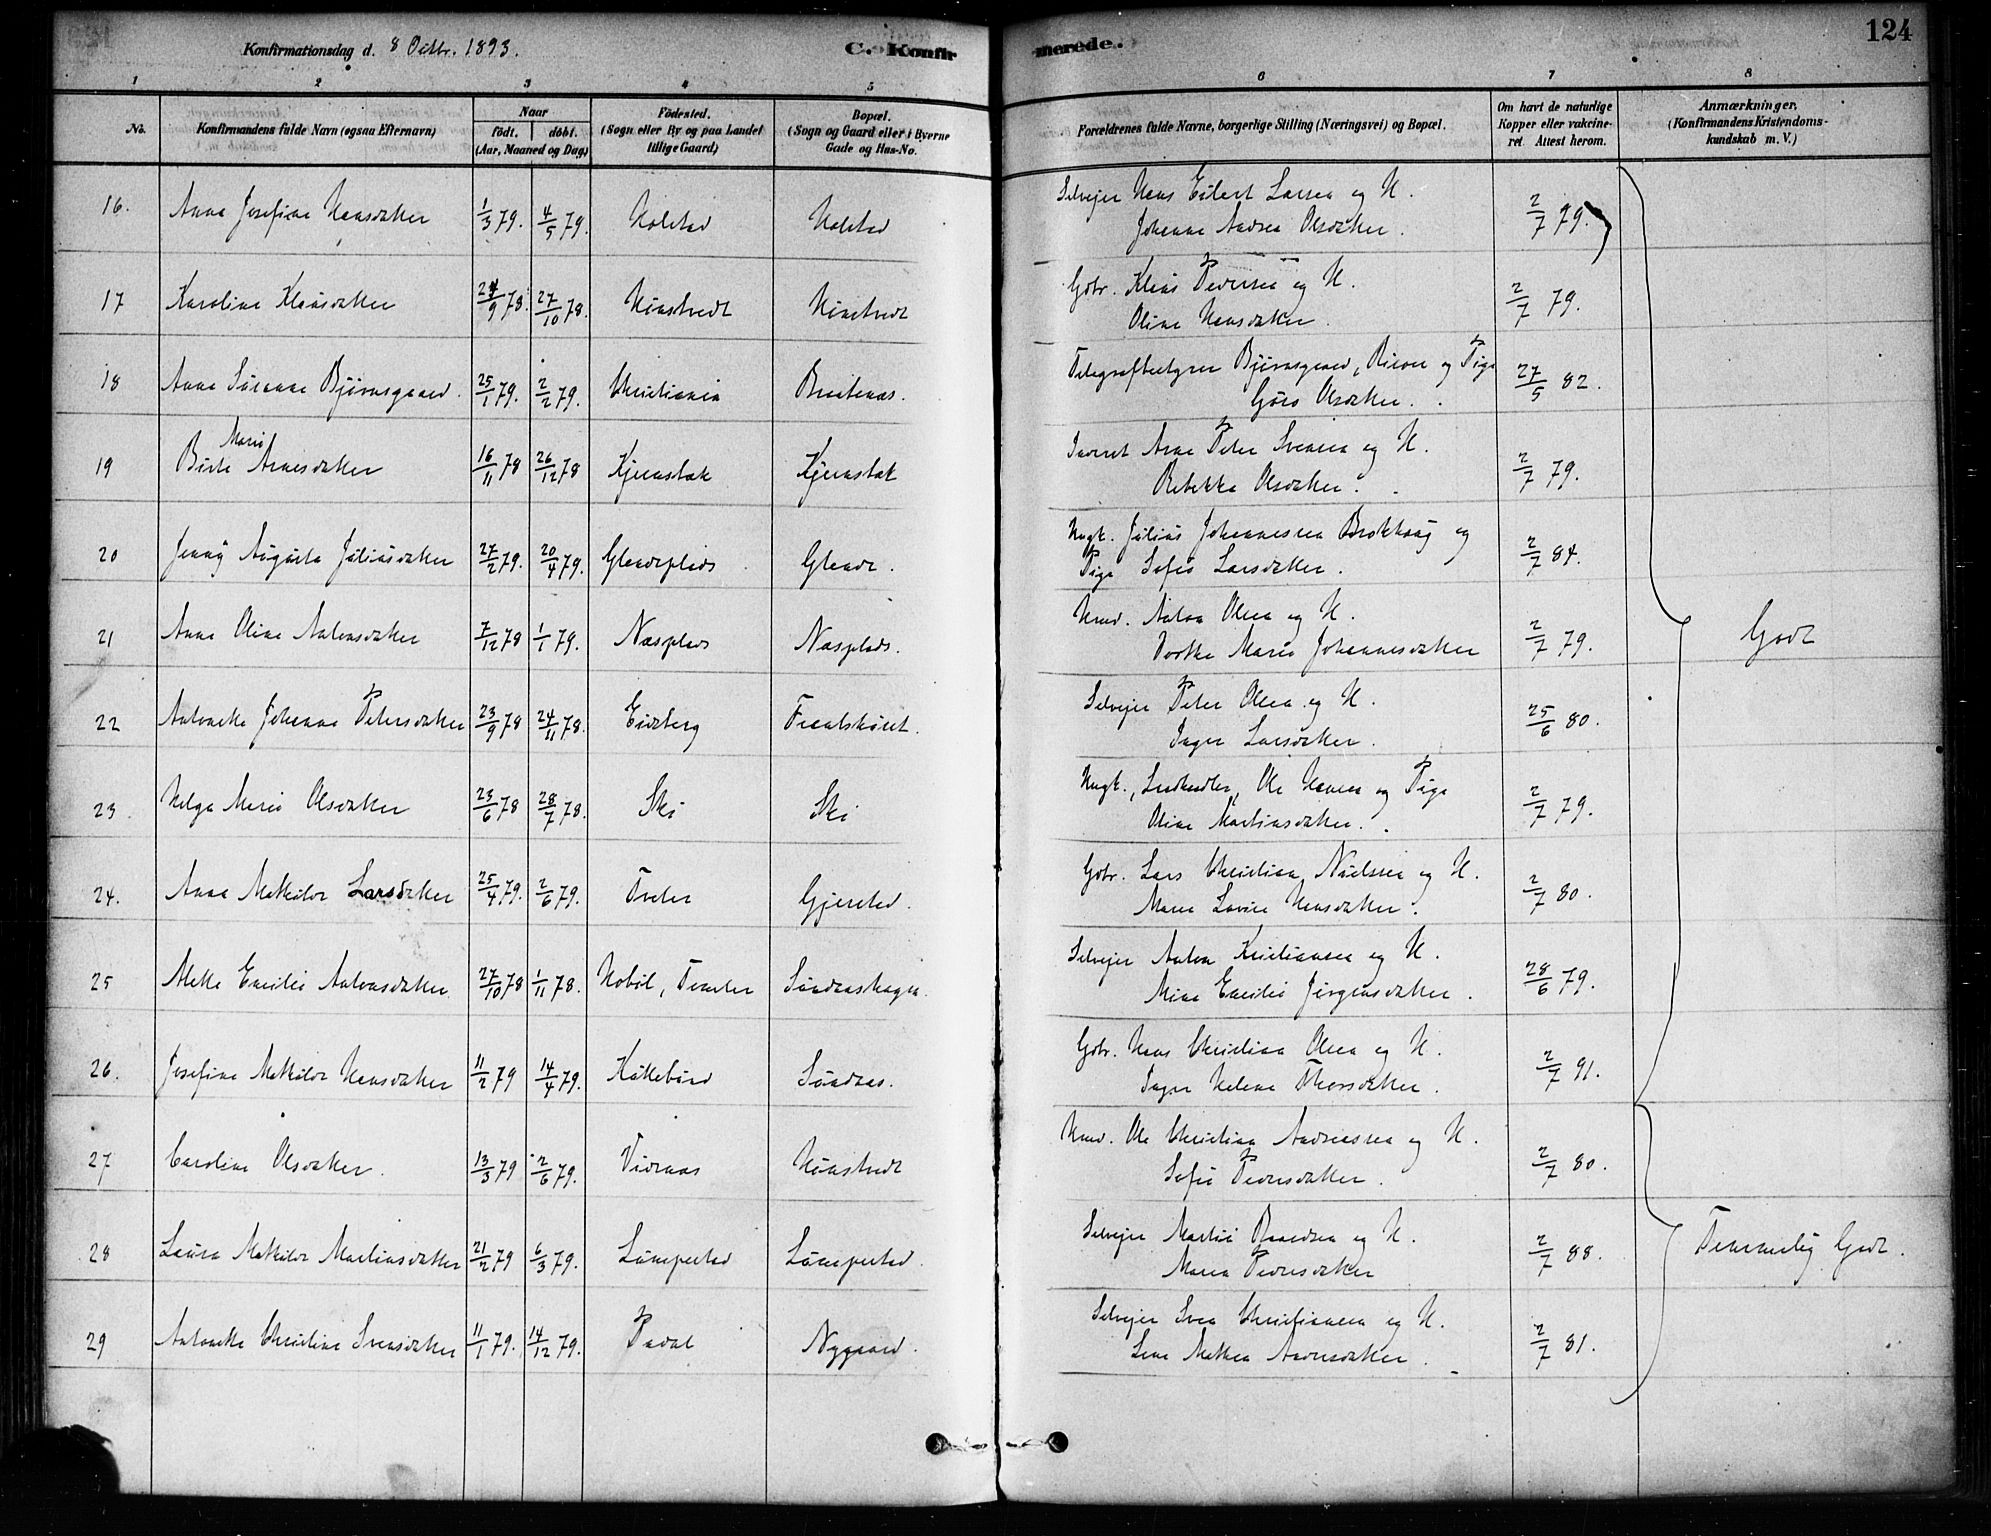 124
Konfirmationsdag d. 8 Octbr. 1893.
C. Konfirmerede.
1 2 3 4 5 6 7 8
No.
Konfirmandens fulde Navn (ogsaa Efternavn)
Naar
født. døbt.
(Aar, Maaned og Dag)
Fødested.
(Sogn eller By og paa Landet
tillige Gaard)
Bopæl.
(Sogn og Gaard eller i Byerne
Gade og Hus-No.
Forældrenes fulde Navne, borgerlige Stilling (Næringsvei) og Bopæl.
Om havt de naturlige
Kopper eller vakcine-
ret. Attest herom.
Anmærkninger,
(Konfirmandens Kristendoms-
kundskab m. V.)
16. Anna Josefine Hansdatter 1/3 79. 4/5 79. Holstad Holstad Selvejer Hans Eilert Larsen og H.
Johanne Andrea Olsdatter. 2/7 79.
17 Karoline Klausdatter 24/9 78. 27/10 78. Gbr. Klaus Pedersen og H.
Oline Hansdatter. 2/7 79.
18 Anna Bjørnsgaard. 25/1 79. 2/2 79. Christiania Telegrafbestyrer Bjørnsgaard, og Pige
Olsdatter. 27/5 82.
19 Birte Marie Arnesdatter 16/11 78 26/12 78 Arne Peter Svensen og H.
Rebekka Olsdatter. 2/7 79.
20 Jenny Augusta Juliusdatter 27/2 79. 20/4 79. Glenneplads Glenne. Ungk. Julius Johannessen og
Pige Sofie Larsdatter. 2/7 84.
21 Anna Oline Antonsdatter 7/12 78 1/1 79. Næsplads Næsplads. Anton Olsen og H.
Dorthe Marie Johannesdatter 2/7 79.
Godt
22 Antonette Johanne Petersdatter 23/9 78 24/11 78. Eidsberg Selvejer Peter Olsen og H.
Inger Larsdatter. 25/6 80.
23. Helga Marie Olsdatter 23/6 78 28/7 78. Ski Ski Ungk., Ole Hansen og Pige
Oline Martinsdatter. 2/7 79.
24. Anna Mathilde Larsdatter 25/4 79. 2/6 79. Tveter Gjerstad. Gbr. Lars Christian Nielsen og H.
Maren Hansdatter. 2/7 80.
25 Mette Emilie Antonsdatter 27/10 78 1/11 78. Hobøl, Selvejer Anton Kristiansen og H.
Mina Emilie Jørgensdatter. 28/6 79.
26. Josefine Mathilde Hansdatter 11/2 79 14/4 79. Gbr. Hans Christian Olsen og H.
Inger Helene Thorsdatter. 2/7 91.
27 Caroline Olsdatter. 13/3 79 2/6 79. Ole Christian Andreassen og H.
Sofie Pedersdatter. 2/7 80.
28 Laura Mathilde Martinsdatter 21/2 79 6/3 79. Selvejer og H.
Maren Pedersdatter 2/7 88.
Temmelig Godt.
29 Antonette Christine Svensdatter 11/1 79. 14/12 79. Nygaard. Selvejer Sven Christiansen og H.
Lene Mathea Andersdatter. 2/7 81.